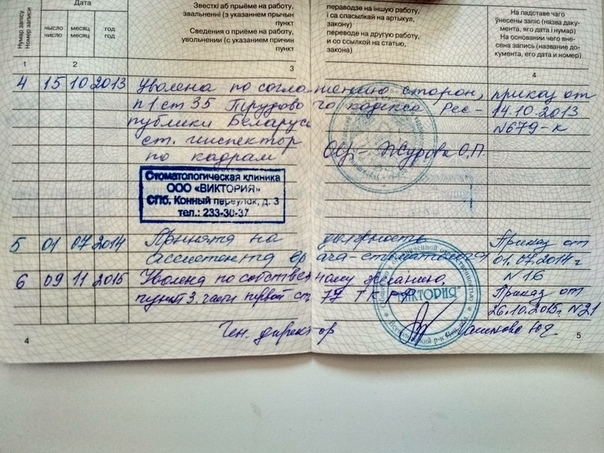 Нумар запісу
Номер записи
Дата
число
число
месяц
месяц
год
год
Звесткі аб прыёме на работу,
звальненні (з указаннем прычын
пункт
Сведения о приёме на работу,
увольнении (с указанием причин
пункт
пераводзе на іншую работу,
і са спасылкай на артыкул,
закону)
переводе на другую работу,
и со ссылкой на статью,
закона)
На падставе чаго
ўнесены запіс (назва даку-
мента, яго дата і нумар)
На основании чего вне-
сена запись (название до-
кумента, его дата и номер)
1 2 3 4
4 15 10 2013 Уволена по соглашению сторон, приказ от
п 1 ст 35 Трудового кодекса Рес- 14.10.2013
публики Беларусь №679-к
ст. инспектор
по кадрам Журова О.П.
Стоматологическая клиника
ООО «ВИКТОРИЯ»
СПб, Конный переулок, д. 3
тел.: 233-30-37
5 01 07 2014 Принята на должность Приказ от
ассистента врача-стоматолога 01.07.2014г
N 16
6 09 11 2015 Уволена по собственному желанию, Приказ от
пункт 3, части первой ст 77 ТК РФ 26.10.2015г N21
ВИКТОРИЯ
Ген. директор
4 5